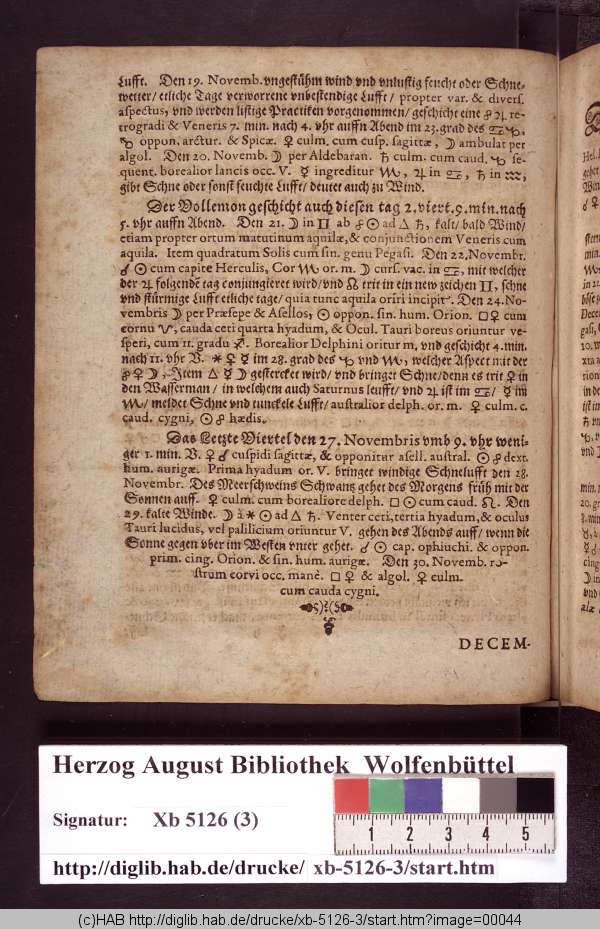 Lufft. Den 19. Novemb. vngestühm wind vnd vnlustig feucht oder Schne-
wetter/ etliche Tage verworrene vnbestendige Lufft/ propter var. & divers.
aspectus, vnd werden listige Practiken vorgenommen/ geschicht eine ☍ ♃ re-
trogradi & Veneris 7. min. nach 4. vhr auffn Abend im 23. grad des ♎ ♑,
♄ oppon. arctur. & Spicæ. ♀ culm. cum cusp. sagittæ, ☽ ambulat per
algol. Den 20. Novemb. ☽ per Aldebaran. ♄ culm. cum caud. ♑ se-
quent. borealior lancis occ. V. ☿ ingreditur ♏, ♃ in ♎, ♄ in ♒,
gibt Schne oder sonst feuchte Lufft/ deutet auch zu Wind.
Der Vollemon geschicht auch diesen tag 2. viert. 9. min. nach
5. vhr auffn Abend. Den 21. ☽ in ♊ ab ☍ ☉ ad △ ♄, kalt/ bald Wind/
etiam propter ortum matutinum aquilæ, & conjunctionem Veneris cum
aquila. Item quadratum Solis cum sin. genu Pegasi. Den 22. Novembr.
☌ ☉ cum capite Herculis, Cor ♏ or. m. ☽ curs. vac. in ♎, mit welcher
der ♃ folgende tag conjungieret wird/ vnd ☊ trit in ein new zeichen ♊, schne
vnd stürmige Lufft etliche tage/ quia tunc aquila oriri incipit. Den 24. No-
vembris ☽ per Præsepe & Asellos, ☉ oppon. sin. hum. Orion. □ ♀ cum
cornu ♈, cauda ceti quarta hyadum, & Ocul. Tauri boreus oriuntur ve-
speri, cum 11. gradu ♐. Borealior Delphini oritur m, vnd geschicht 4. min.
nach 11. vhr V. ⚹ ♀ ☿ im 28. grad des ♑ vnd ♏, welcher Aspect mit der
☍ ♀ ☽, Item △ ☿ ☽ gestercket wird/ vnd bringet Schne/ denn es trit ♀ in
den Wasserman/ in welchem auch Saturnus leufft/ vnd ♃ ist im ♎/ ☿ im
♏/ meldet Schne vnd tunckele Lufft/ australior delph. or. m. ♀ culm. c.
caud. cygni, ☉ ☍ hædis.
Das Letzte Viertel den 27. Novembris vmb 9. vhr weni-
ger 1. min. V. ♀ ☌ cuspidi sagittæ, & opponitur asell. austral. ☉ ☍ dext.
hum. aurigæ. Prima hyadum or. V. bringet windige Schnelufft den 28.
Novembr. Des Meerschweins Schwantz gehet des Morgens früh mit der
Sonnen auff. ♀ culm. cum borealiore delph. □ ☉ cum caud. ♌. Den
29. kalte Winde. ☽ à ⚹ ☉ ad △ ♄. Venter ceti, tertia hyadum, & oculus
Tauri lucidus, vel palilicium oriuntur V. gehen des Abends auff/ wenn die
Sonne gegen vber im Westen vnter gehet. ☌ ☉ cap. ophiuchi. & oppon.
prim. cing. Orion. & sin. hum. aurigæ. Den 30. Novemb. ro-
strum corvi occ. manè. □ ♀ & algol. ♀ culm.
cum cauda cygni.
DECEM-
Herzog August Bibliothek Wolfenbüttel
Signatur: Xb 5126 (3)
1 2 3 4 5
http://diglib.hab.de/drucke/ xb-5126-3/start.htm
(c)HAB http://diglib.hab.de/drucke/xb-5126-3/start.htm?image=00044